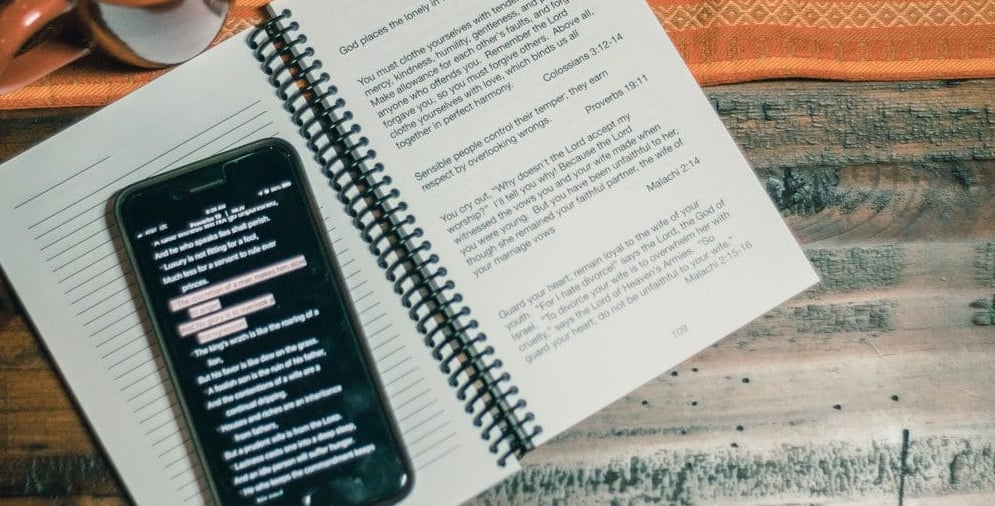 Proverbs 19
And he who speaks lies shall perish.
Luxury is not fitting for a fool,
Much less for a servant to rule over
princes.
The discretion of a man makes him slow
to anger,
And his glory is to overlook a
transgression.
The king's wrath is like the roaring of a
lion,
But his favor is like dew on the grass.
A foolish son is the ruin of his father,
And the contentions of a wife are a
continual dripping.
Houses and riches are an inheritance
from fathers,
But a prudent wife is from the LORD.
Laziness casts one into a deep sleep,
And an idle person will suffer hunger.
He who keeps the commandment keeps
God places the lonely in
You must clothe yourselves with
mercy, kindness, humility, gentleness, and
Make allowance for each other's faults, and
anyone who offends you. Remember the Lord
forgave you, so you must forgive others. Above all,
clothe yourselves with love, which binds us all
together in perfect harmony.
Colossians 3:12-14
Sensible people control their temper; they earn
respect by overlooking wrongs.
Proverbs 19:11
You cry out, "Why doesn't the Lord accept my
worship?" I'll tell you why! Because the Lord
witnessed the vows you and your wife made when
you were young. But you have been unfaithful to her,
though she remained your faithful partner, the wife of
your marriage vows
Malachi 2:14
Guard your heart; remain loyal to the wife of your
youth. "For I hate divorce!" says the Lord, the God of
Israel. "To divorce your wife is to overwhelm her with
cruelty," says the Lord of Heaven's Armies. "So
guard your heart; do not be unfaithful to your wife."
Malachi 2:15-16
109